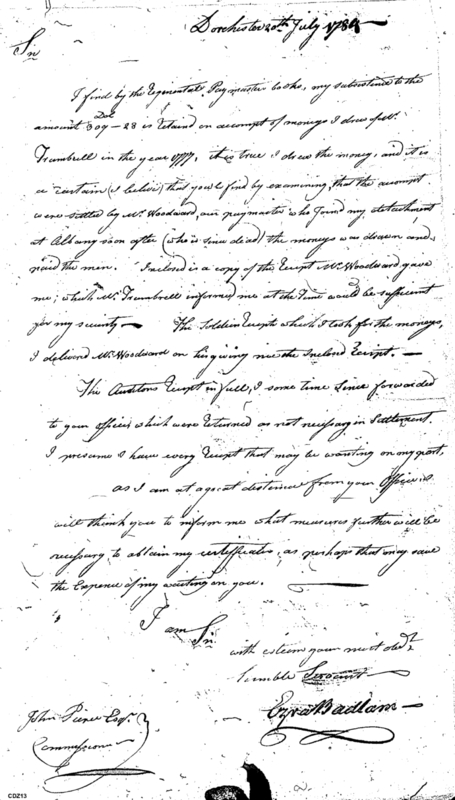 Dorchester 20th July 1784
Sir
I find by the Regimental Paymaster books, my subsistence to the
Dol
amount 309-28 is on accompt of moneys I drew of Mr.
Trumbrell in the year 1777, it is true I drew the money, and it is
as certain (I believe) that you'll find by examining, that the accompt
were settled by Mr. Woodward, our paymaster who joind my detachment
at Albany soon after (who is since dead) the moneys was drawn and
paid the men. Inclosed is a copy of the Recept Mr. Woodward gave
me, which Mr. Trumbrell informed me at the time would be sufficient
for my security — The Soldiers Recepts which I took for the moneys,
I deliverd Mr. Woodward on his giving me the Inclosd Recipt. —
The Auditors Recept in full, I some time since forwarded
to your office, which were returned as not necessary in Settlement.
I presume I have every Recept that may be wanting on my part,
as I am at a great distance from your Office
will thank you to inform me what measures further will be
necessary to obtain my certificates, as perhaps that may save
the Expence of my waiting on you.
I am Sir
with esteem your most obdt
humble Servant
Ezra Badlam
John Pierce Esqr.
Commissioner
CDZ13